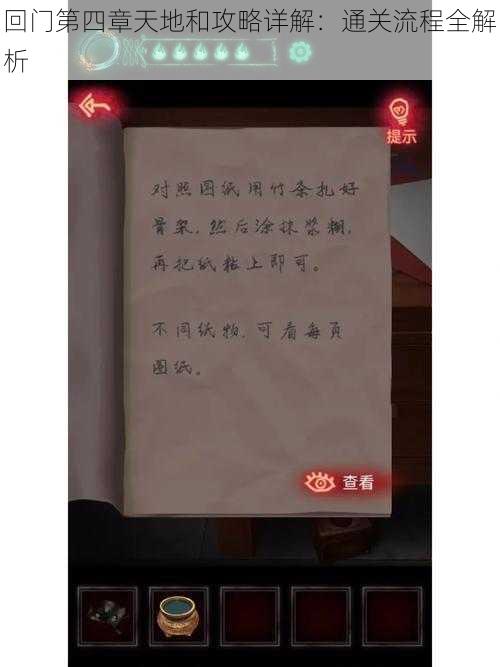 回门第四章天地和攻略详解：通关流程全解
析
提示
对照图纸用竹条扎好
骨架，然后涂抹浆糊，
再把纸粘上即可。
不同纸物，可看每页
图纸。
查看